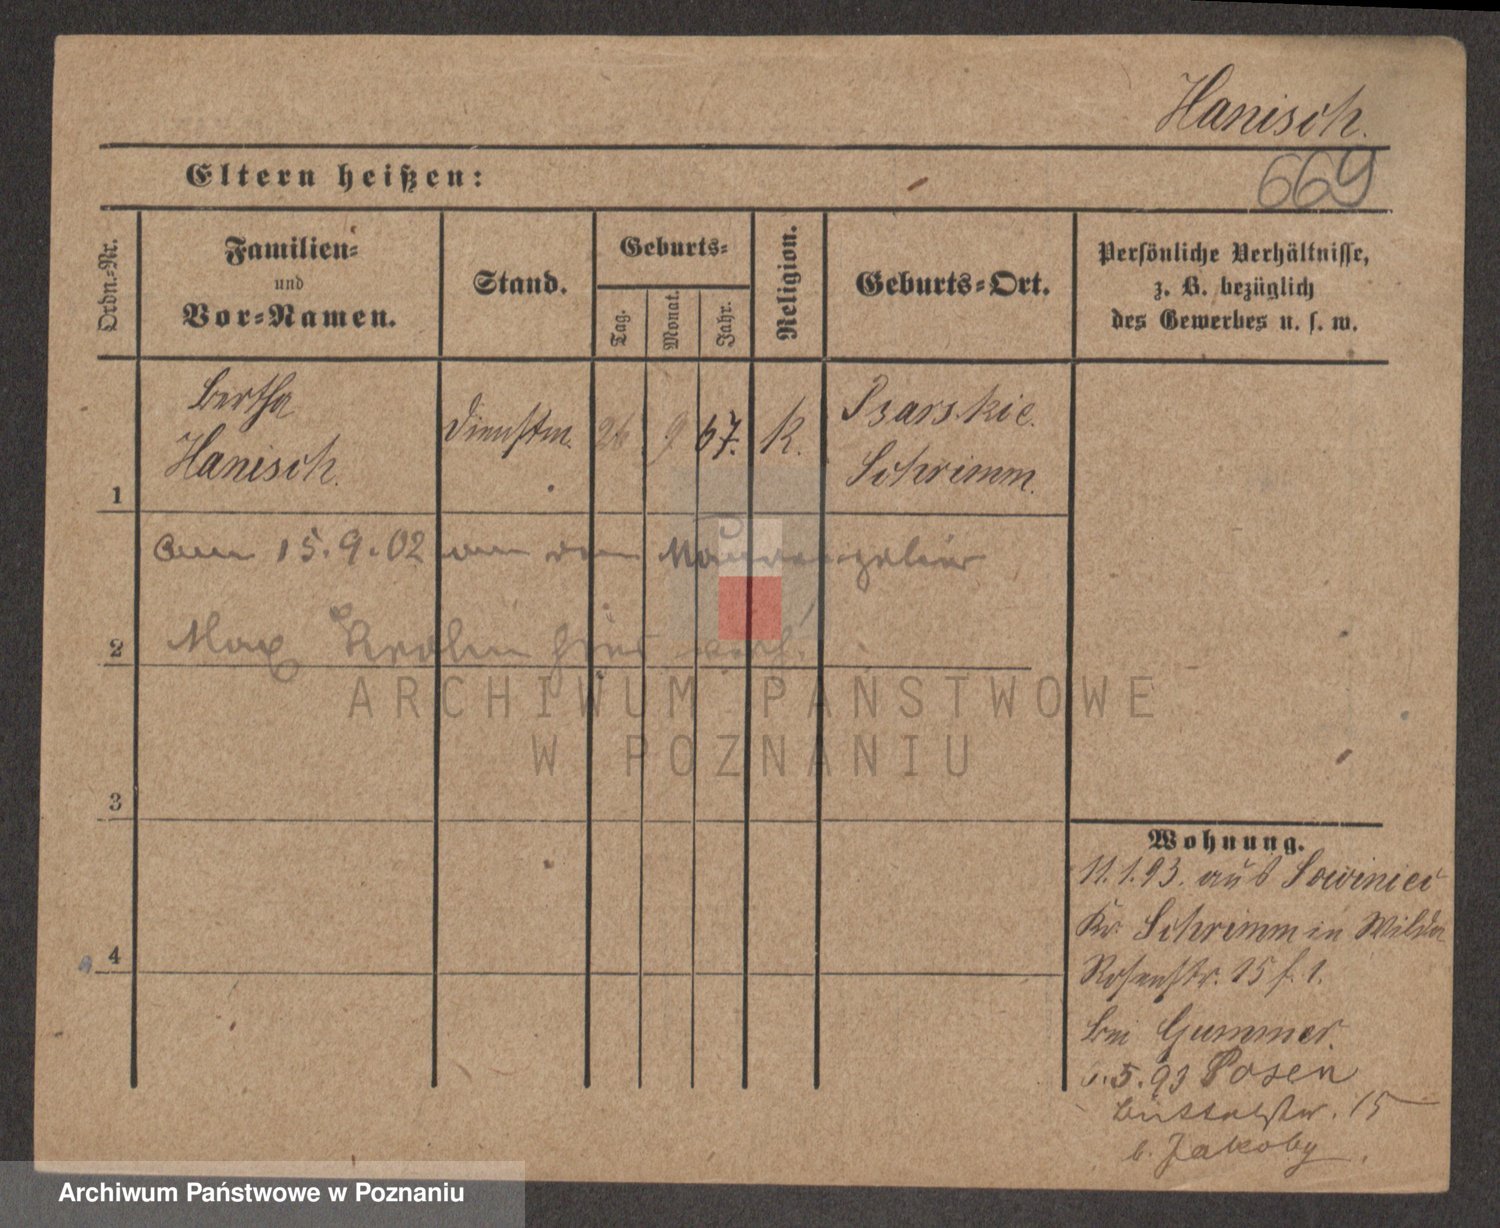 Hanisch.
669
Eltern heißen:
Ordn.-Nr.
Familien-
und
Vor-Namen.
Stand.
Geburts-
Tag.
Monat.
Jahr.
Religion.
Geburts-Ort.
Persönliche Verhältnisse,
z. B. bezüglich
des Gewerbes u. s. w.
1
Bertha
Hanisch.
Dienstm.
26
9
67.
K.
Psarskie.
Schrimm.
am 15.9.02 an den
2
Max hier verh.
3
4
Wohnung.
11.1.93. aus Sowiniec
Kr. Schrimm in Wilda
Rosenstr. 15 f. 1.
bei Gummer.
5.93 Posen
15
b. Jakoby
ARCHIWUM PAŃSTWOWE
W POZNANIU
Archiwum Państwowe w Poznaniu